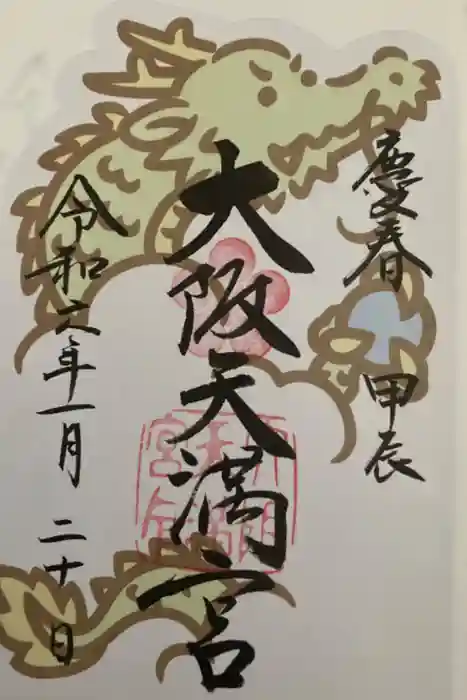 慶春 甲辰
大阪天満宮
令和六年一月 二十日